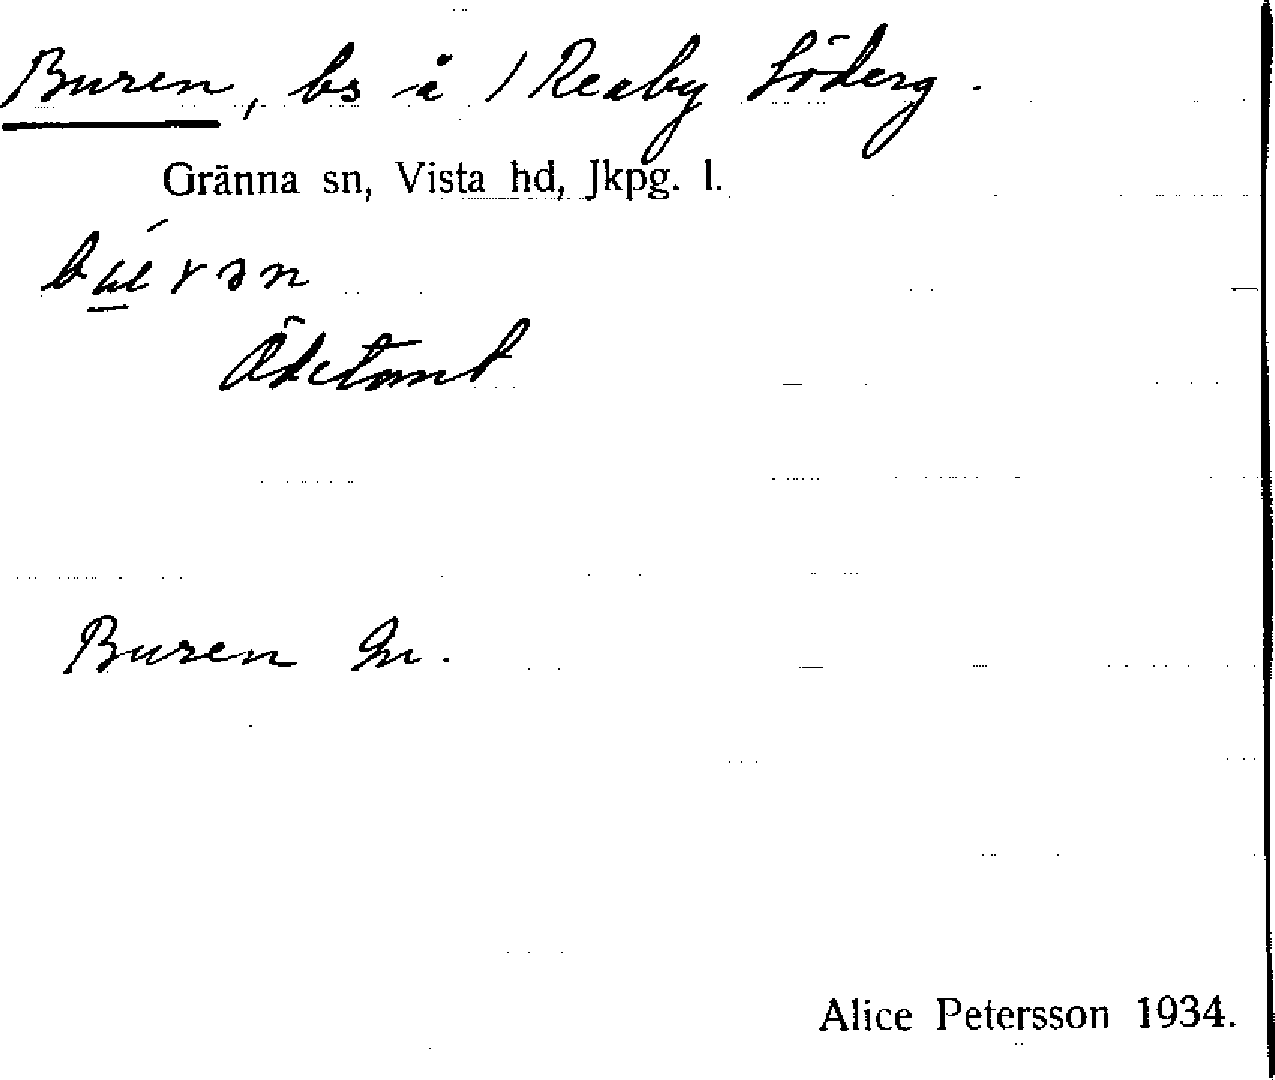 Buren, bs å 1 Reaby Söderg.
Gränna sn, Vista hd, Jkpg. l.
Ödetomt
Buren Gr.
Alice Petersson 1934.